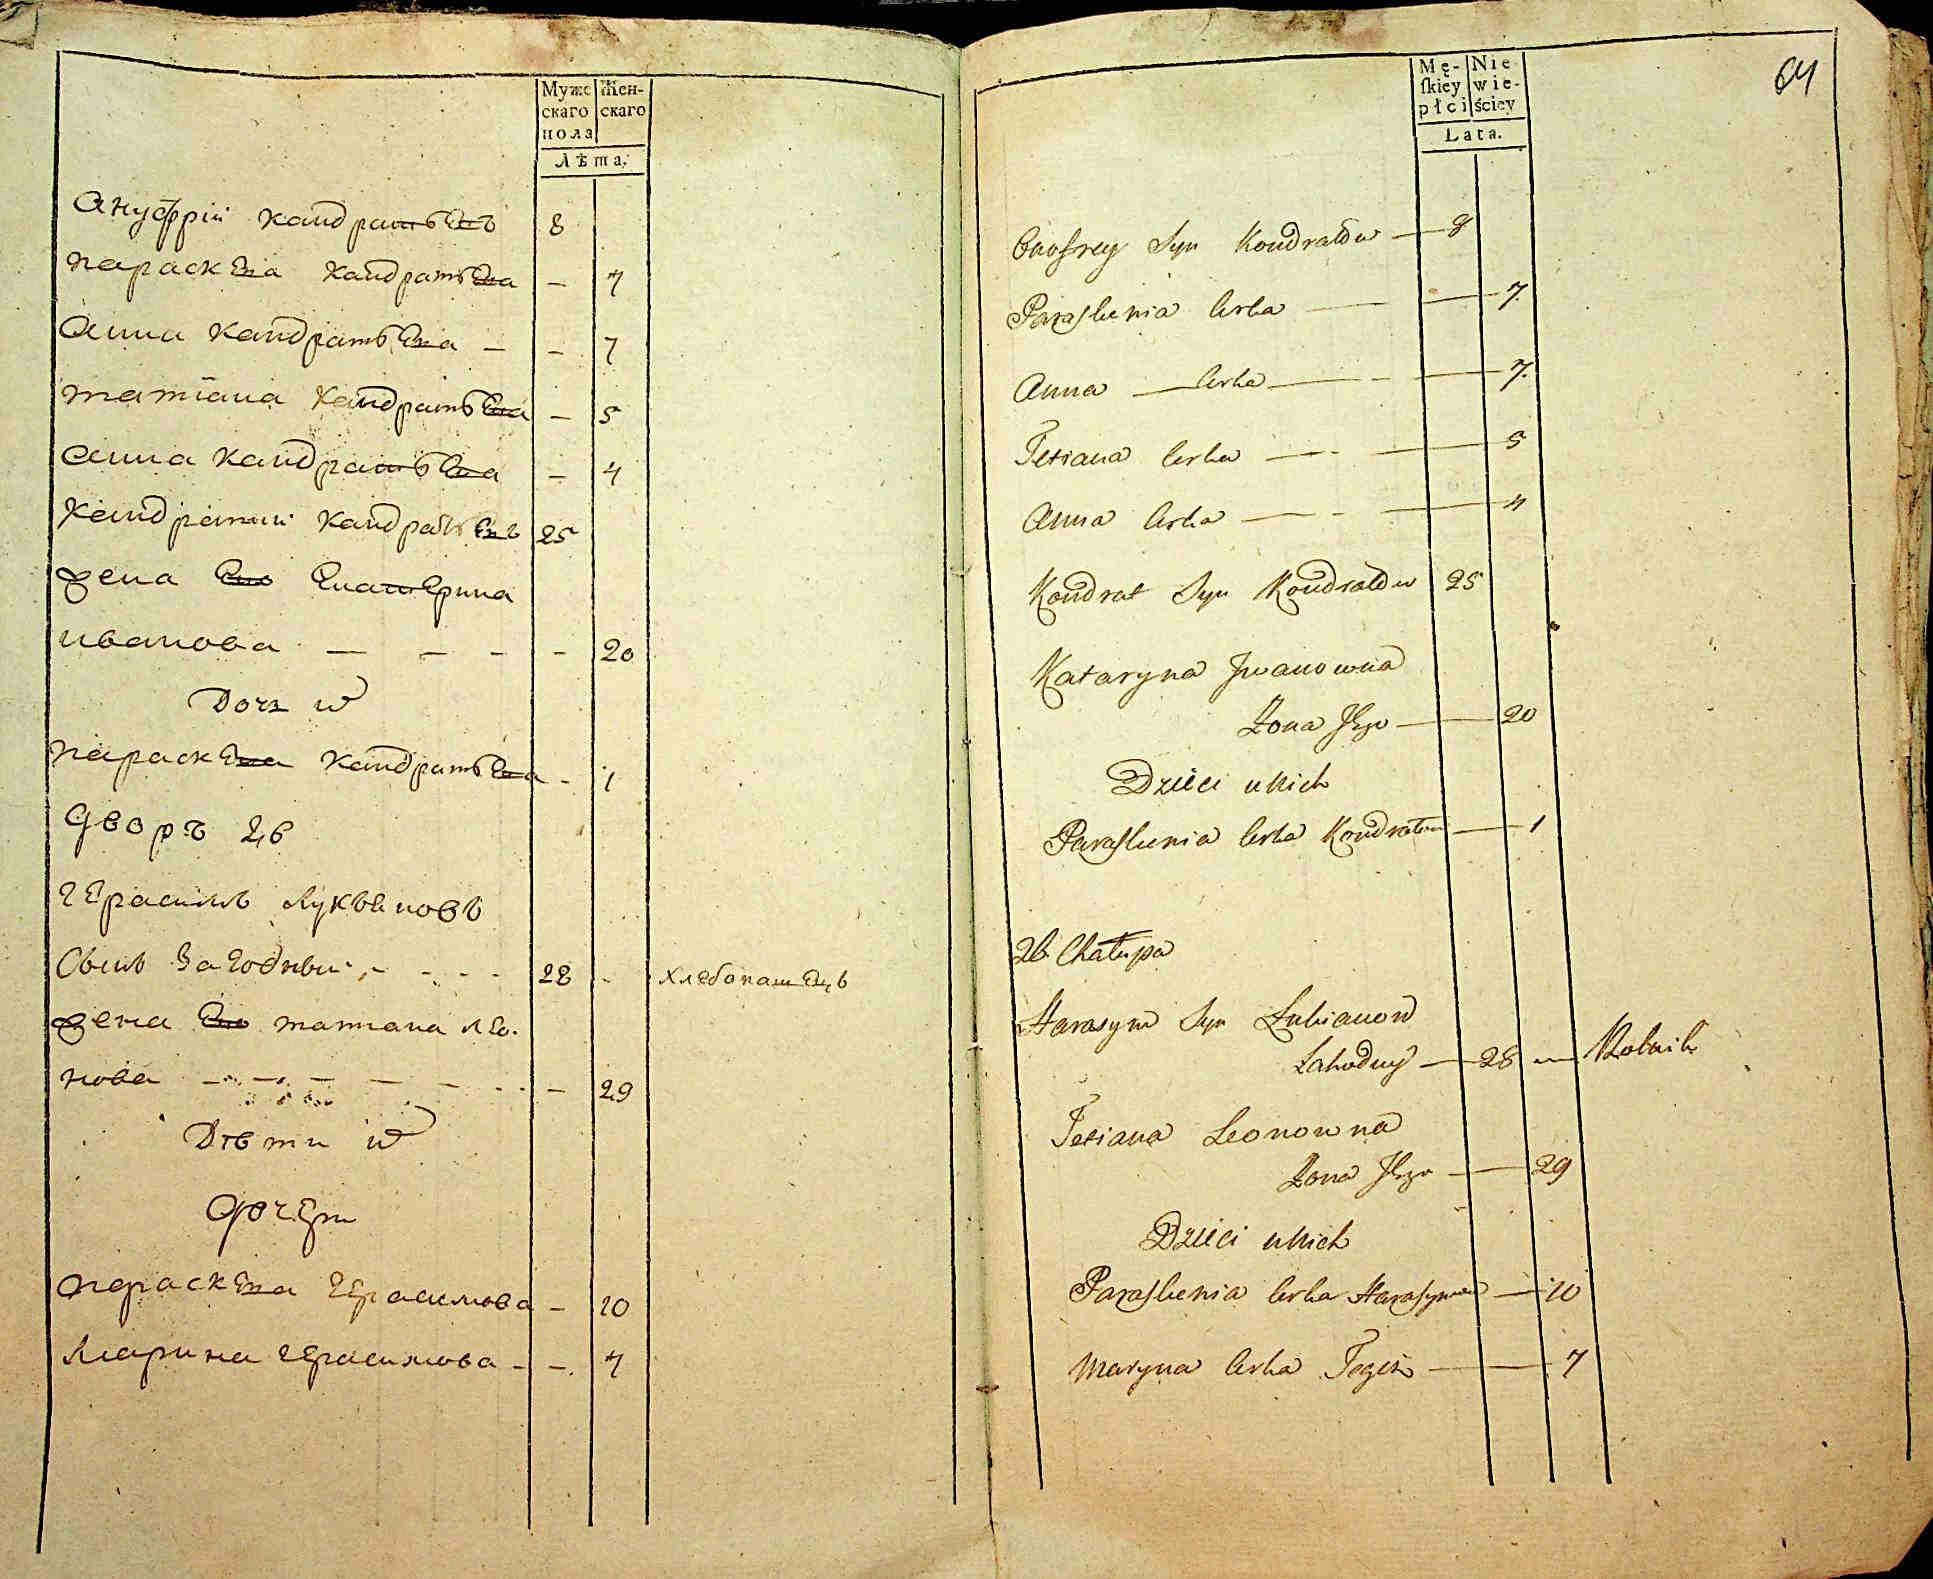 Муже
скаго
пола
Жен-
скаго
Лѣта.
Ануфрїи Кандратьевъ 8
Параскева Кандратьева - 7
Анна Кандратьева - - 7
Татїана Кандратьева - 5
Анна Кандратьева - 4
Кандратий Кандратьевъ 25
жена ево Екатерина
Иванова - - - - 20
Дочь ихъ
Параскева Кандратьева - 1
Дворъ 26
Герасимъ Лукьяновъ
Сынъ Загодный - - - 28 - хлебопашецъ
жена ево Татиана Лео-
нова - - - - - - 29
Дѣти ихъ
Дочери
Параскева Герасимова - 10
Марина Герасимова - - 7
64
Mę-
skiey
płci
Nie
wie-
ściey
Lata.
Onofrey Syn Kondratow — 8
Paraskenia Corka — — 7.
Anna — Corka — - — 7.
Tetiana Corka — - — 5
Anna Corka — - — 4
Kondrat Syn Kondratow 25
Kataryna Jwanowna
Żona Jego — — 20
Dzieci u Nich
Paraskenia Corka Kondratowa — — 1
26. Chałupa
Harasym Syn Łukianow
Zahodny — 28 — Rolnik
Tetiana Leonowna
Żona Jego — — 29
Dzieci u Nich
Paraskenia Corka Harasymowa — 10
Maryna Corka Tegoż — — 7